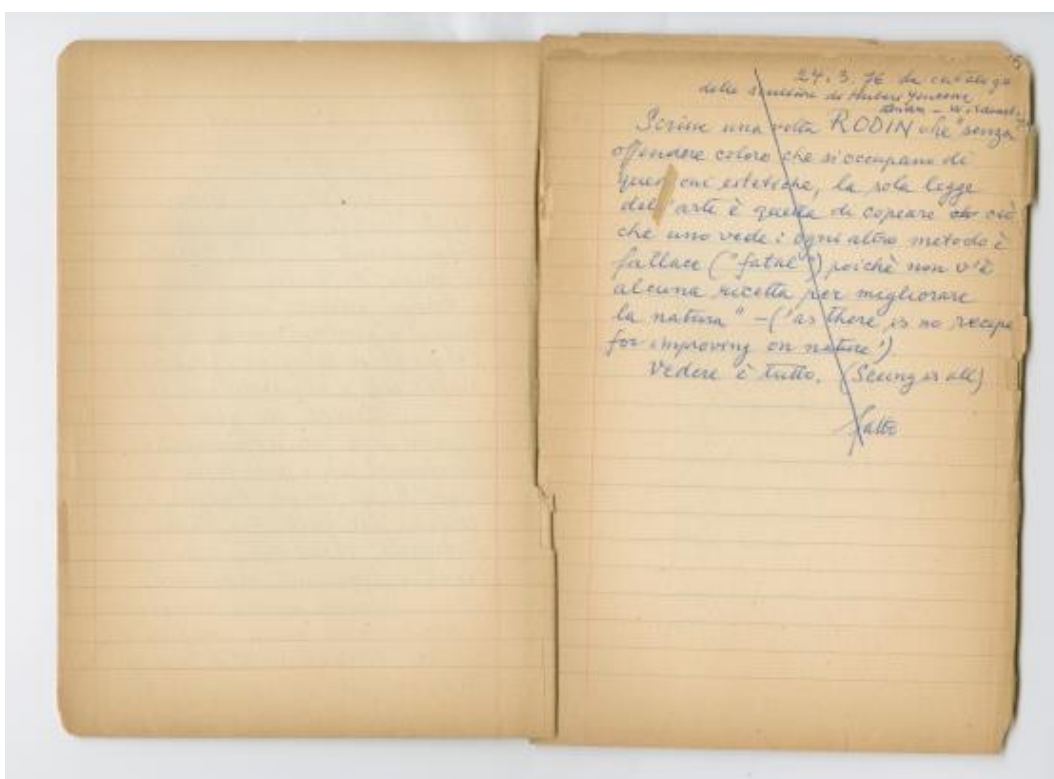 24.3.76 da catalogo
delle
Scrisse una volta RODIN che "senza
offendere coloro che si occupano di
estetiche, la sola legge
dell'arte è quella di copiare ciò
che uno vede: ogni altro metodo è
fallace ("fatal") poichè non v'è
alcuna ricetta per migliorare
la natura" – ('as there is no recipe
for improving on nature')
Vedere è tutto. (Seeing is all)
fatto